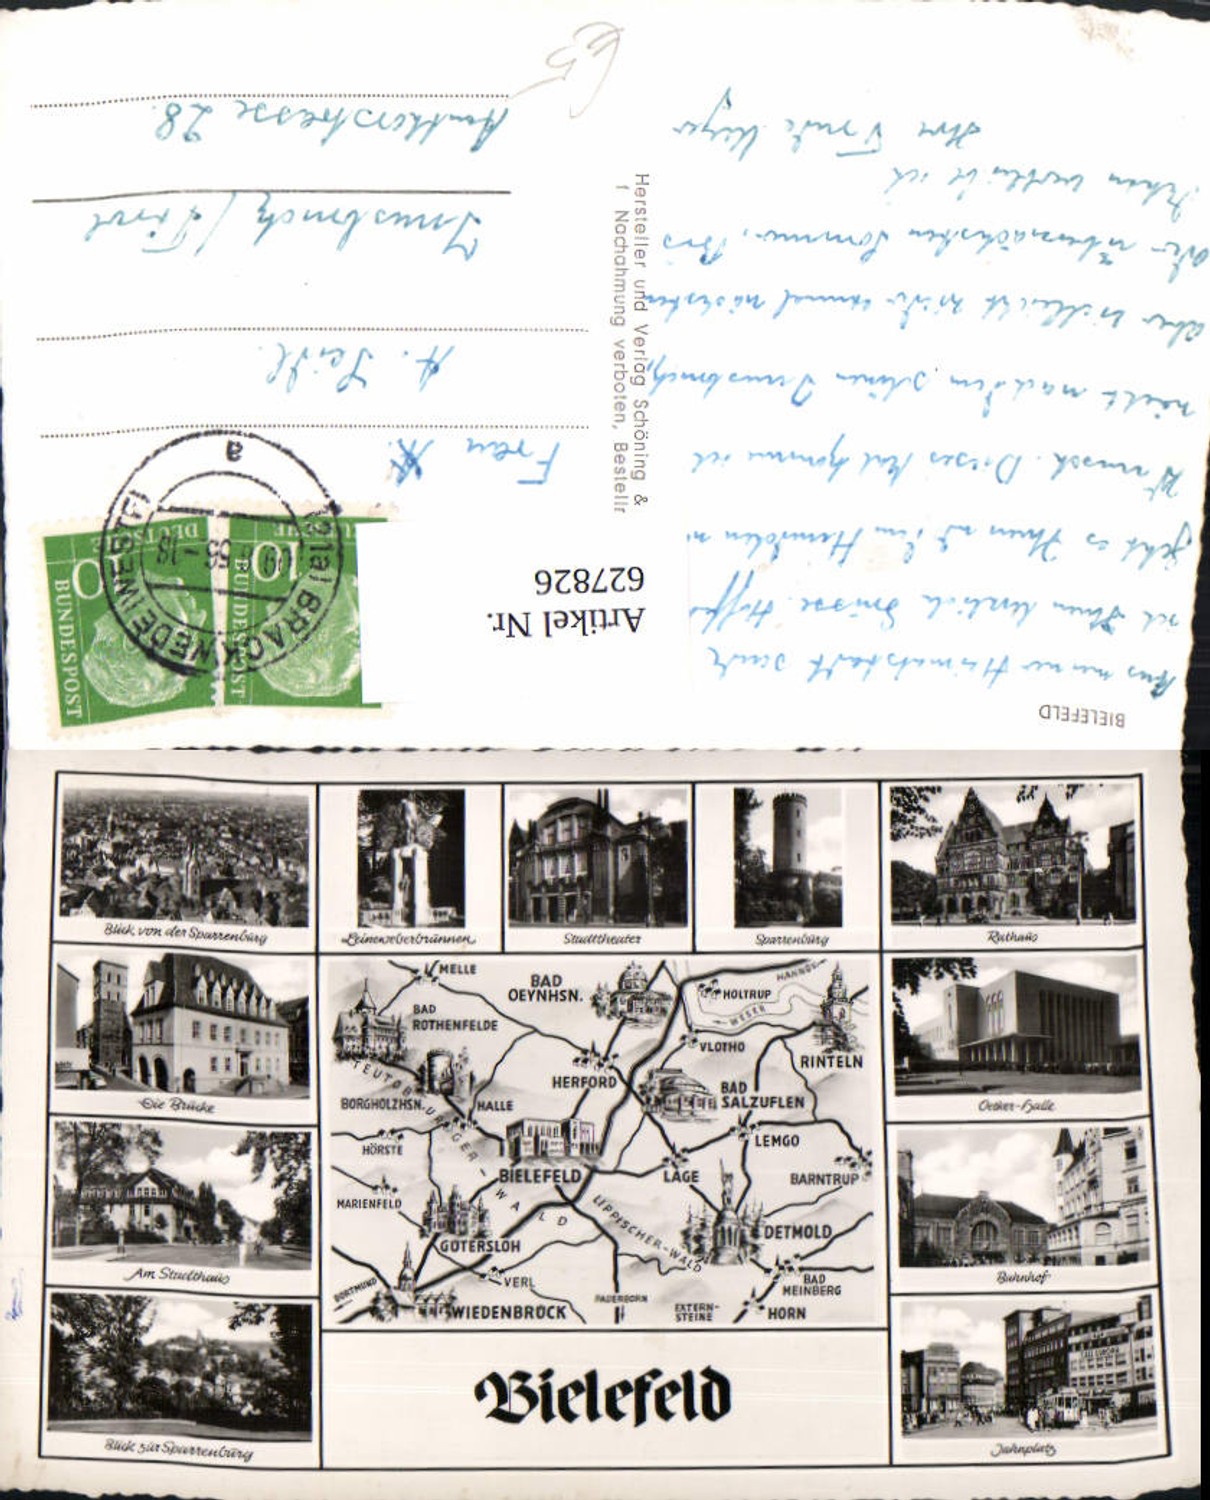 BIELEFELD
Aus meiner Heimatstadt sende
ich Ihnen herzliche Grüsse. Hoffe
geht es Ihnen und dem Heinzlein n
Wunsch. Dieses Mal komme ich
nicht nach dem schönen Innsbruck,
aber vielleicht wieder einmal nächsten
oder übernächsten Sommer. Bis
dahin verbleibe ich
Ihre
Artikel Nr.
627826
Hersteller und Verlag Schöning &
f Nachahmung verboten, Bestellr
10
DEUTSCHE
BUNDESPOST
10
DEUTSCHE
BUNDESPOST
BRACKWEDE (WESTF)
55-18
a
Frau
A. Seidl
Innsbruck / Tirol
strasse 28
Blick von der Sparrenburg
Leineweberbrunnen
Stadttheater
Sparrenburg
Rathaus
Die Brücke
Am Stadthaus
Blick zur Sparrenburg
Oetker-Halle
Bahnhof
Jahnplatz
MELLE
BAD OEYNHSN.
HANNOV
HOLTRUP
WESER
BAD ROTHENFELDE
VLOTHO
RINTELN
TEUTOBURGER-WALD
HERFORD
BORGHOLZHSN.
HALLE
BAD SALZUFLEN
HÖRSTE
LEMGO
BIELEFELD
LAGE
BARNTRUP
MARIENFELD
LIPPISCHER-WALD
GÜTERSLOH
DETMOLD
VERL
DORTMUND
BAD MEINBERG
PADERBORN
WIEDENBRÜCK
EXTERN-STEINE
HORN
Bielefeld